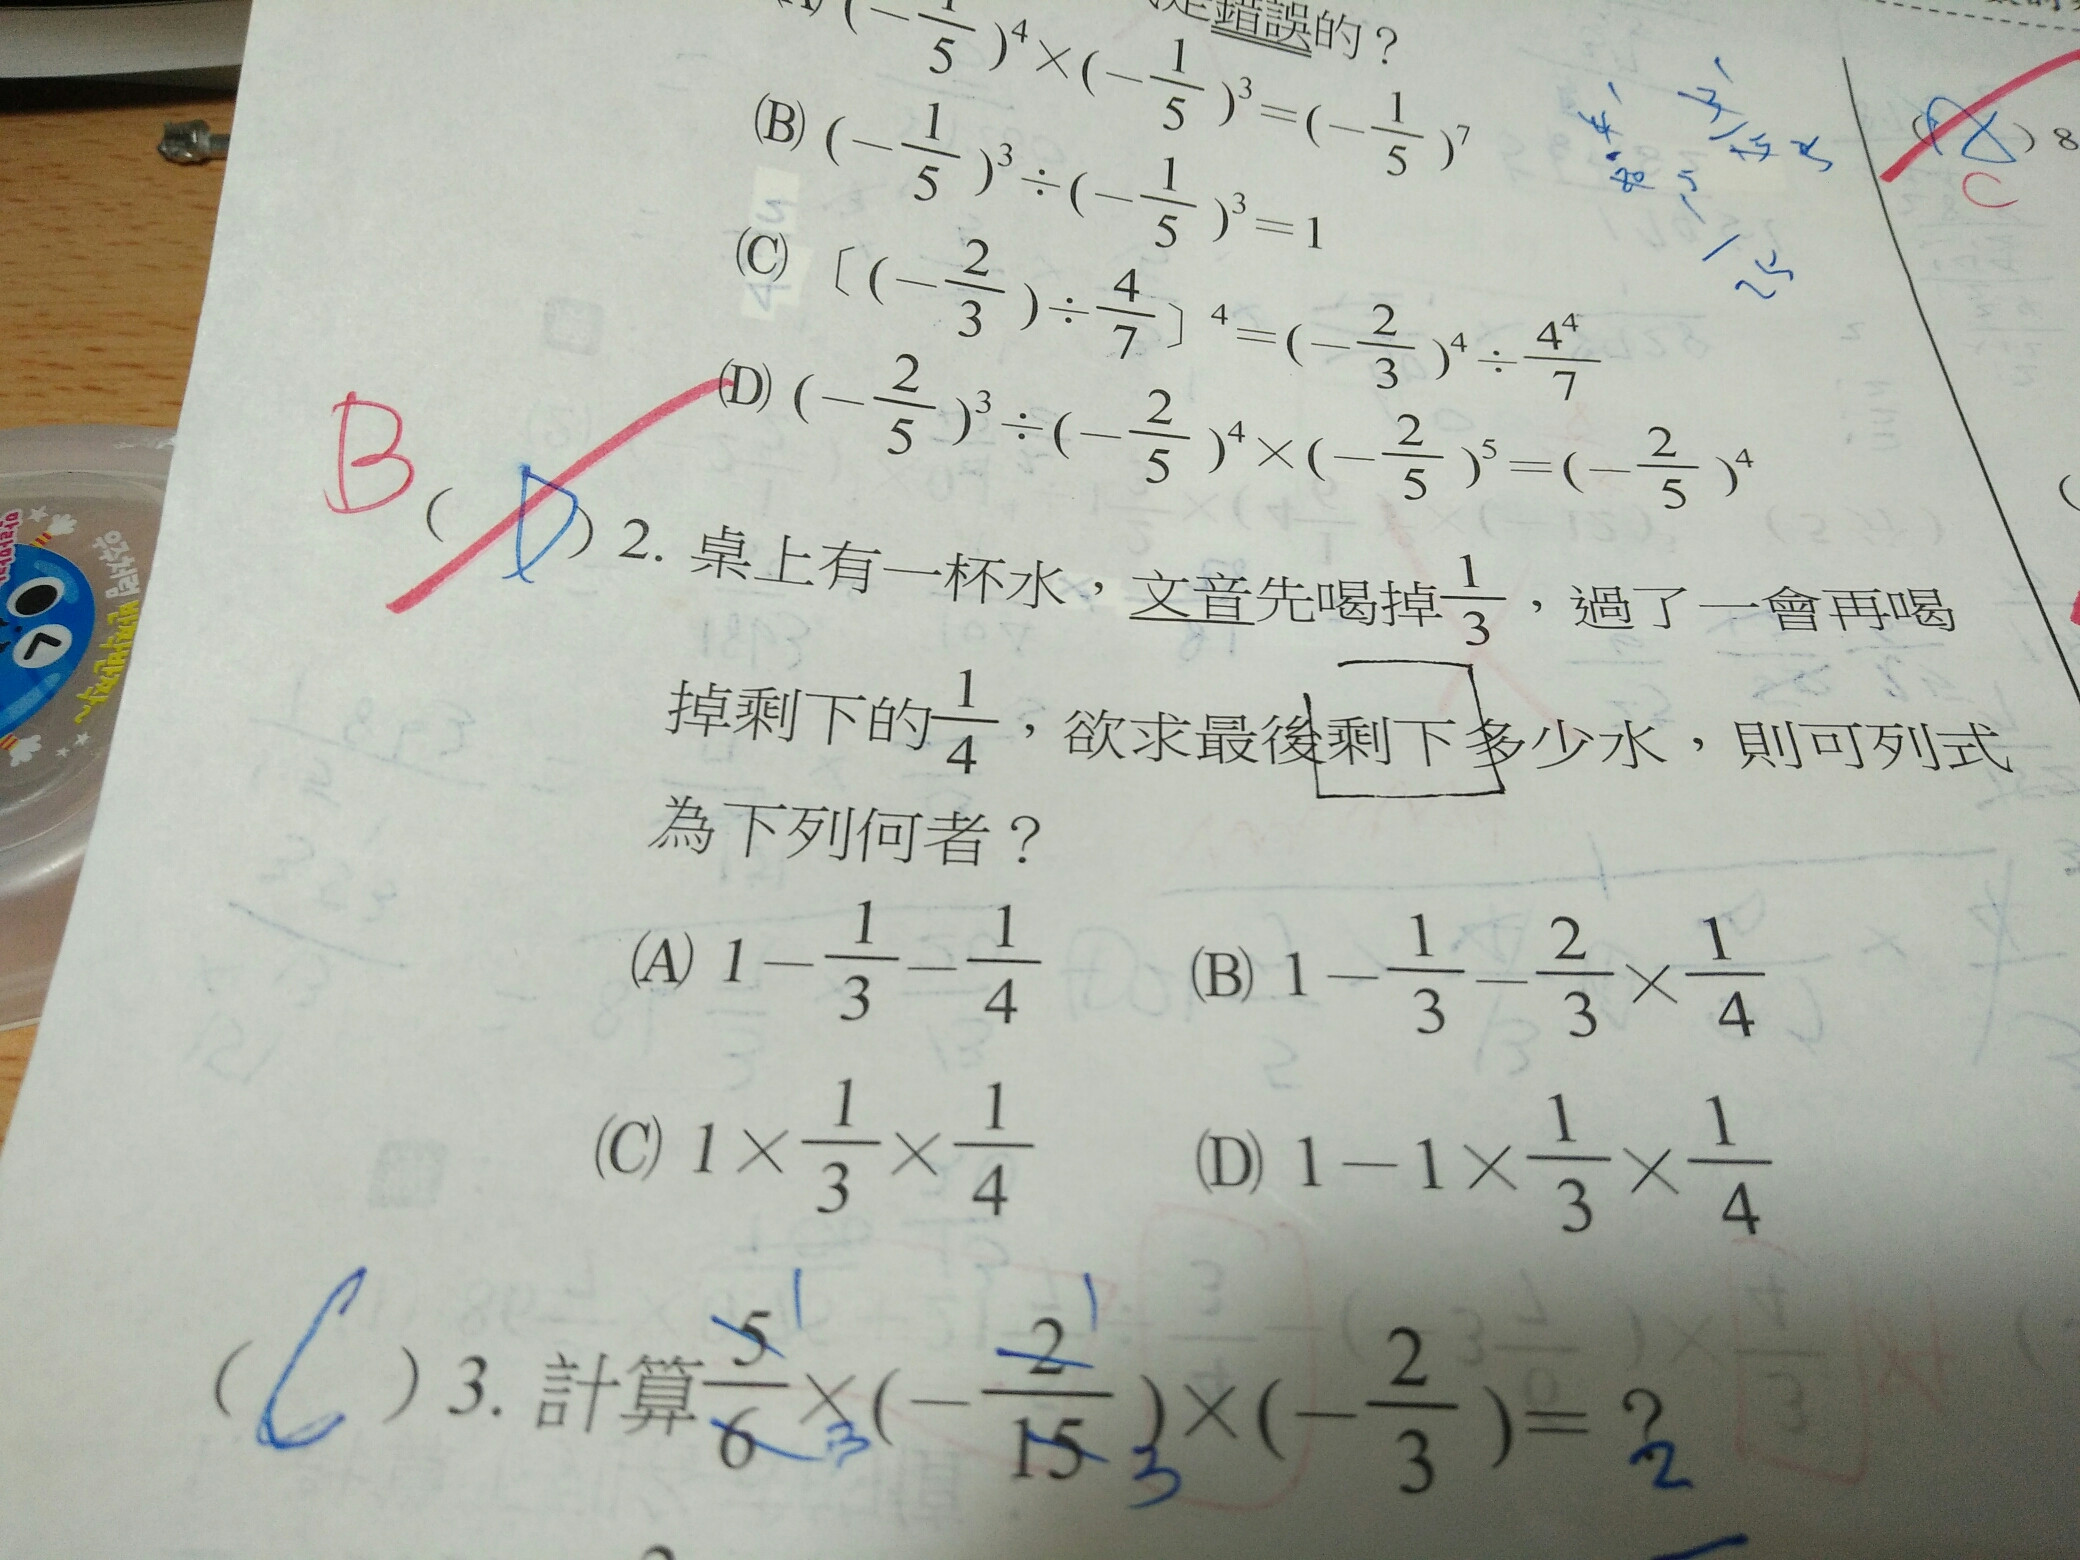 錯誤的？
(-1/5)⁴×(-1/5)³=(-1/5)⁷
(B) (-1/5)³÷(-1/5)³=1
(C) 〔(-2/3)÷4/7〕⁴=(-2/3)⁴÷4⁴/7
(D) (-2/5)³÷(-2/5)⁴×(-2/5)⁵=(-2/5)⁴
B
( D ) 2. 桌上有一杯水，文音先喝掉1/3，過了一會再喝
掉剩下的1/4，欲求最後剩下多少水，則可列式
為下列何者？
(A) 1-1/3-1/4 (B) 1-1/3-2/3×1/4
(C) 1×1/3×1/4 (D) 1-1×1/3×1/4
( C ) 3. 計算5/6×(-2/15)×(-2/3)=？
1 1
3 3 2
) 8
C
1
25